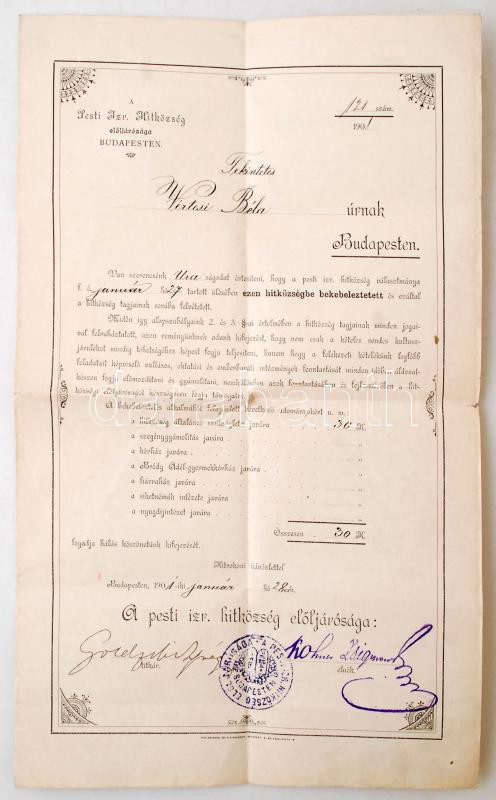 A
Pesti Izr. Hitközség
előljárósága
BUDAPESTEN.
121 szám.
1901
Tekintetes
Vértesi Béla úrnak
Budapesten.
Van szerencsénk Ura ságodat értesíteni, hogy a pesti izr. hitközség választmánya
f. é. január hó 27 tartott ülésében ezen hitközségbe bekebeleztetett és ezáltal
a hitközség tagjainak sorába felvétetett.
Midőn így alapszabályaink 2. és 3. §-ai értelmében a hitközség tagjainak minden jogai-
val felruháztatott, azon reményünknek adunk kifejezést, hogy nem csak a köteles rendes kultusz-
járulékot mindig tehetségéhez képest fogja teljesíteni, hanem hogy a felekezeti kötelékünk legfőbb
feladatait képviselő vallásos, oktatási és emberbaráti intézmények fenntartását minden időben áldozat-
készen fogja előmozdítani és gyámolítani, nemkülönben azok fenntartásában és fejlesztésében a hit-
községi előljáróságot készségesen fogja támogatni.
A bekebeleztetés alkalmából felajánlott következő adományokért u. m.:
a hitközség általános szükséglet javára 30 K.
a szegénygyámolítás javára "
a kórház javára "
a Bródy Adél-gyermekkórház javára "
a fiárvaház javára "
a siketnémák intézete javára "
a nyugdíjintézet javára "
Összesen 30 K.
fogadja hálás köszönetünk kifejezését.
Hitrokoni üdvözlettel
Budapesten, 1901-iki január hó 28án.
A pesti izr. hitközség előljárósága:
Goldziher Ignác
titkár.
Kohner Zsigmond
elnök.
darabanth